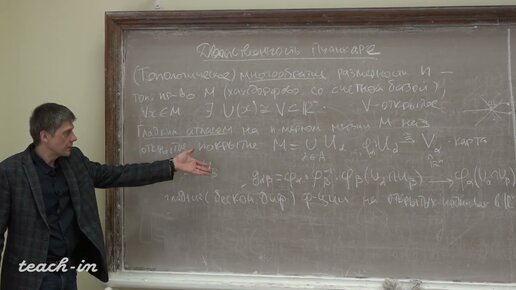 Двойственность Пуанкаре
(Топологическое) многообразие размерности n —
топ. пр-во M (хаусдорфово со счетной базой),
∀x∈M ∃ U(x) ≅ V ⊂ ℝⁿ V - открытое
Гладким атласом на n-мерном M наз.
открытое покрытие M = ∪ U_α φ_α: U_α ≅→ V_α - карта
α∈A ℝⁿ
g_αβ = φ_α ∘ φ_β⁻¹: φ_β(U_α ∩ U_β) → φ_α(U_α ∩ U_β)
гладкие (беск. диф.) ф-ции на открытых в ℝⁿ
teach-in